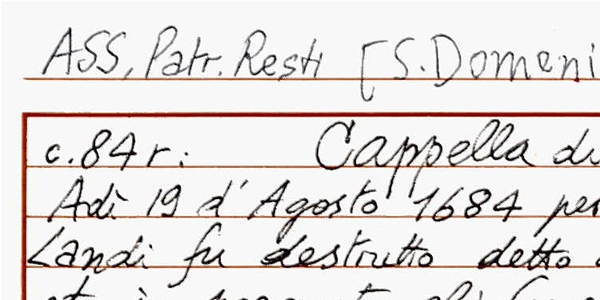 ASS, Patr. Resti [S. Domeni
c. 84 r: Cappella di
Adì 19 d'Agosto 1684 per
Landi fu destrutto detto